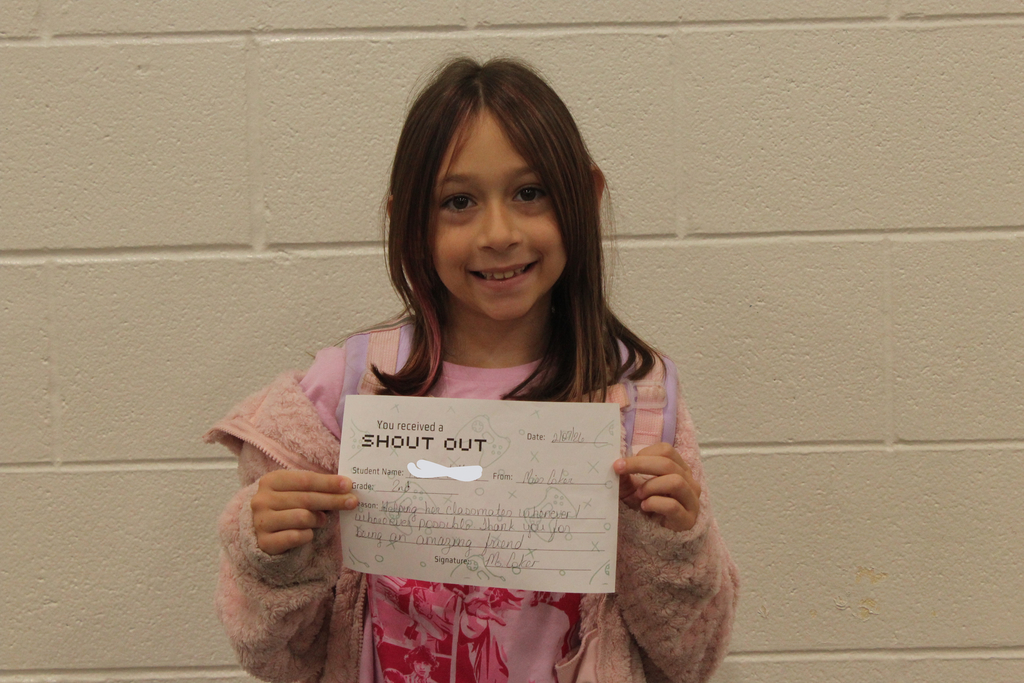 You received a
SHOUT OUT
Date:
Student Name:
From: Miss Coker
Grade: 2nd
Reason: Helping her classmates whenever/
wherever possible thank you for
being an amazing friend
Signature: Ms. Coker